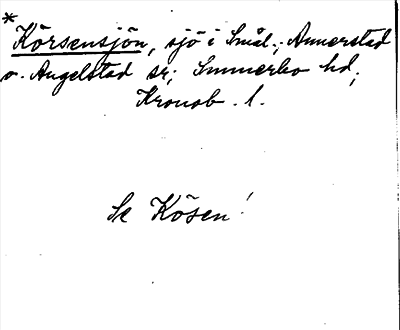 *
Körsensjön, sjö i Smål.; Annerstad
o. Angelstad sr; Sunnerbo hd,
Kronob. l.
Se Kösen!